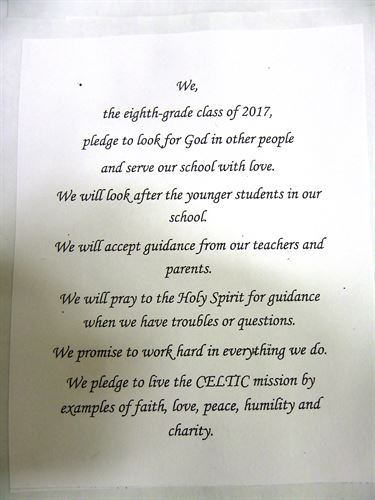 We,
the eighth-grade class of 2017,
pledge to look for God in other people
and serve our school with love.
We will look after the younger students in our
school.
We will accept guidance from our teachers and
parents.
We will pray to the Holy Spirit for guidance
when we have troubles or questions.
We promise to work hard in everything we do.
We pledge to live the CELTIC mission by
examples of faith, love, peace, humility and
charity.